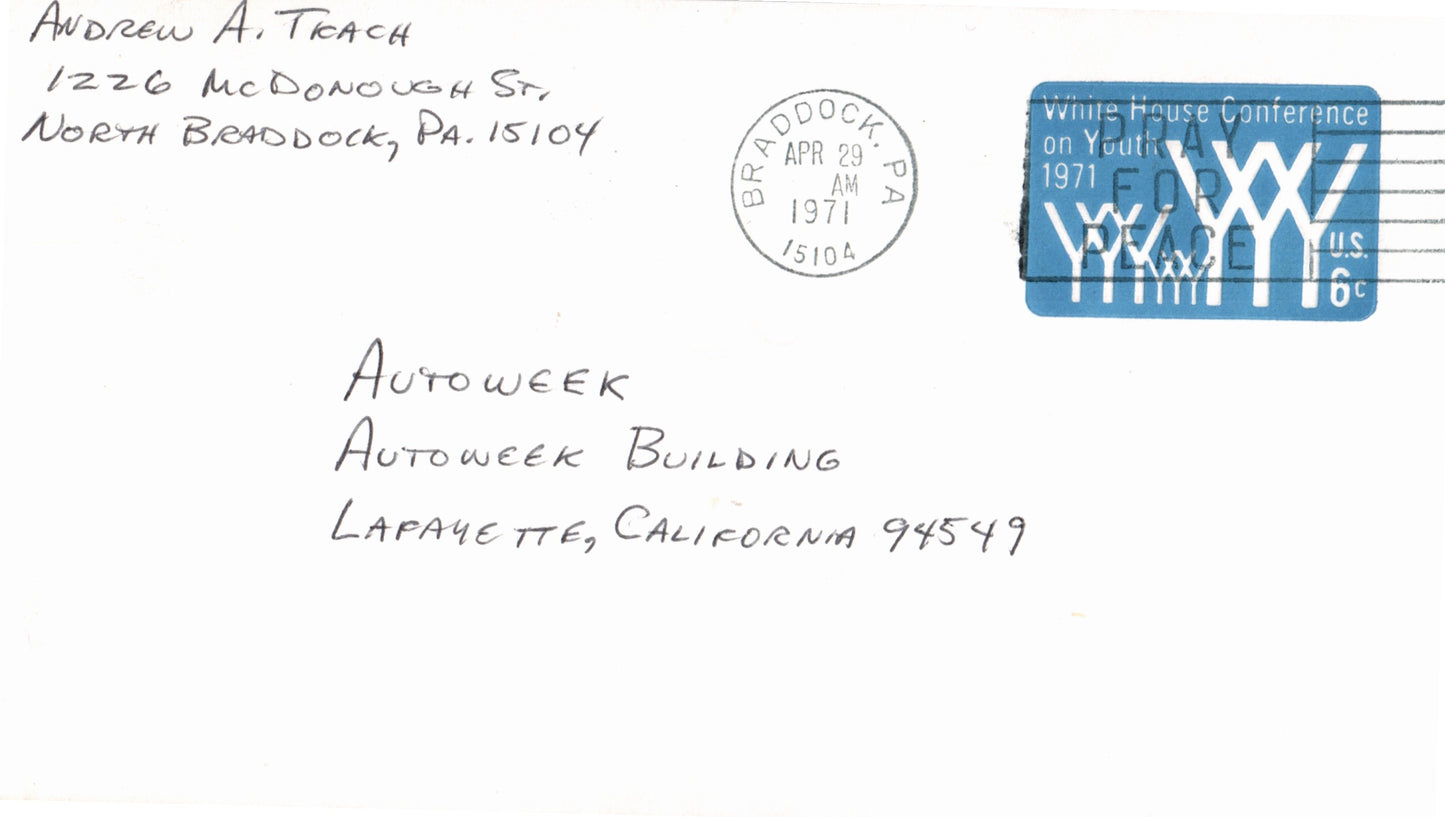 ANDREW A. TKACH
1226 McDONOUGH ST.
NORTH BRADDOCK, PA. 15104
BRADDOCK, PA
APR 29
AM
1971
15104
White House Conference
on Youth
1971
PRAY
FOR
PEACE
U.S.
6c
AUTOWEEK
AUTOWEEK BUILDING
LAFAYETTE, CALIFORNIA 94549